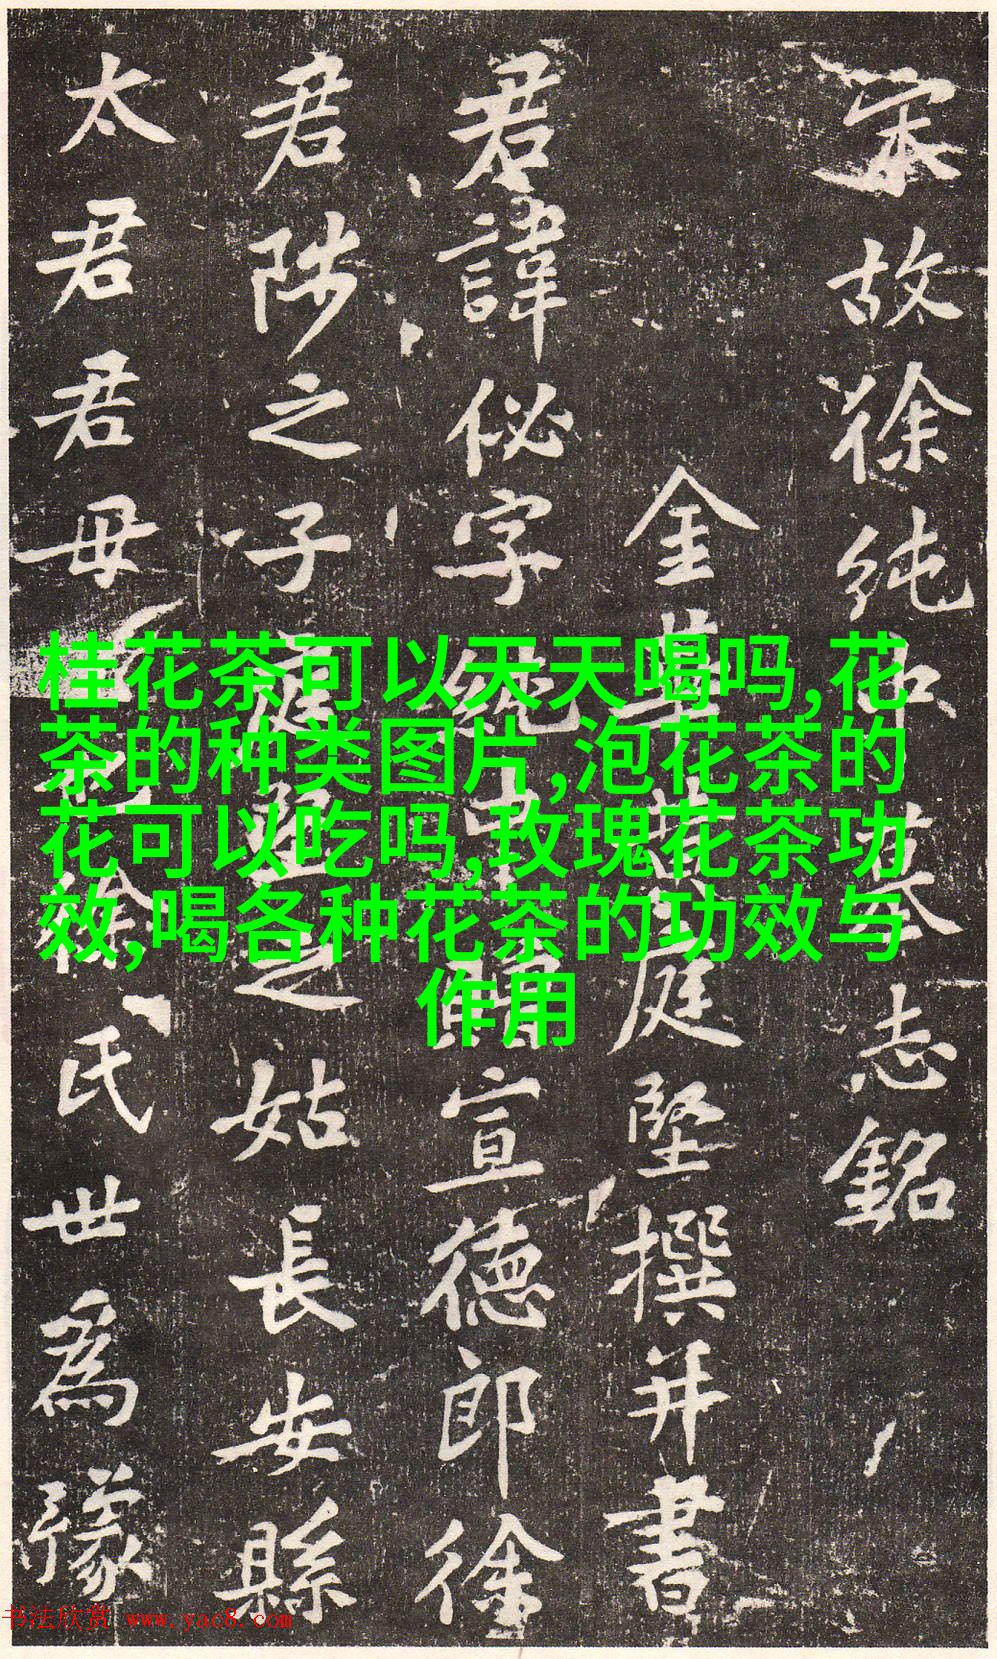 宋故徐純中墓志銘
金華黃庭堅撰并書
君諱佖字純中宣德郎徐
君陟之子庭堅之姑長安縣
太君君母徐氏世爲豫
桂花茶可以天天喝吗,花
茶的种类图片,泡花茶的
花可以吃吗,玫瑰花茶功
效,喝各种花茶的功效与
作用
书法欣赏 www.yac8.com